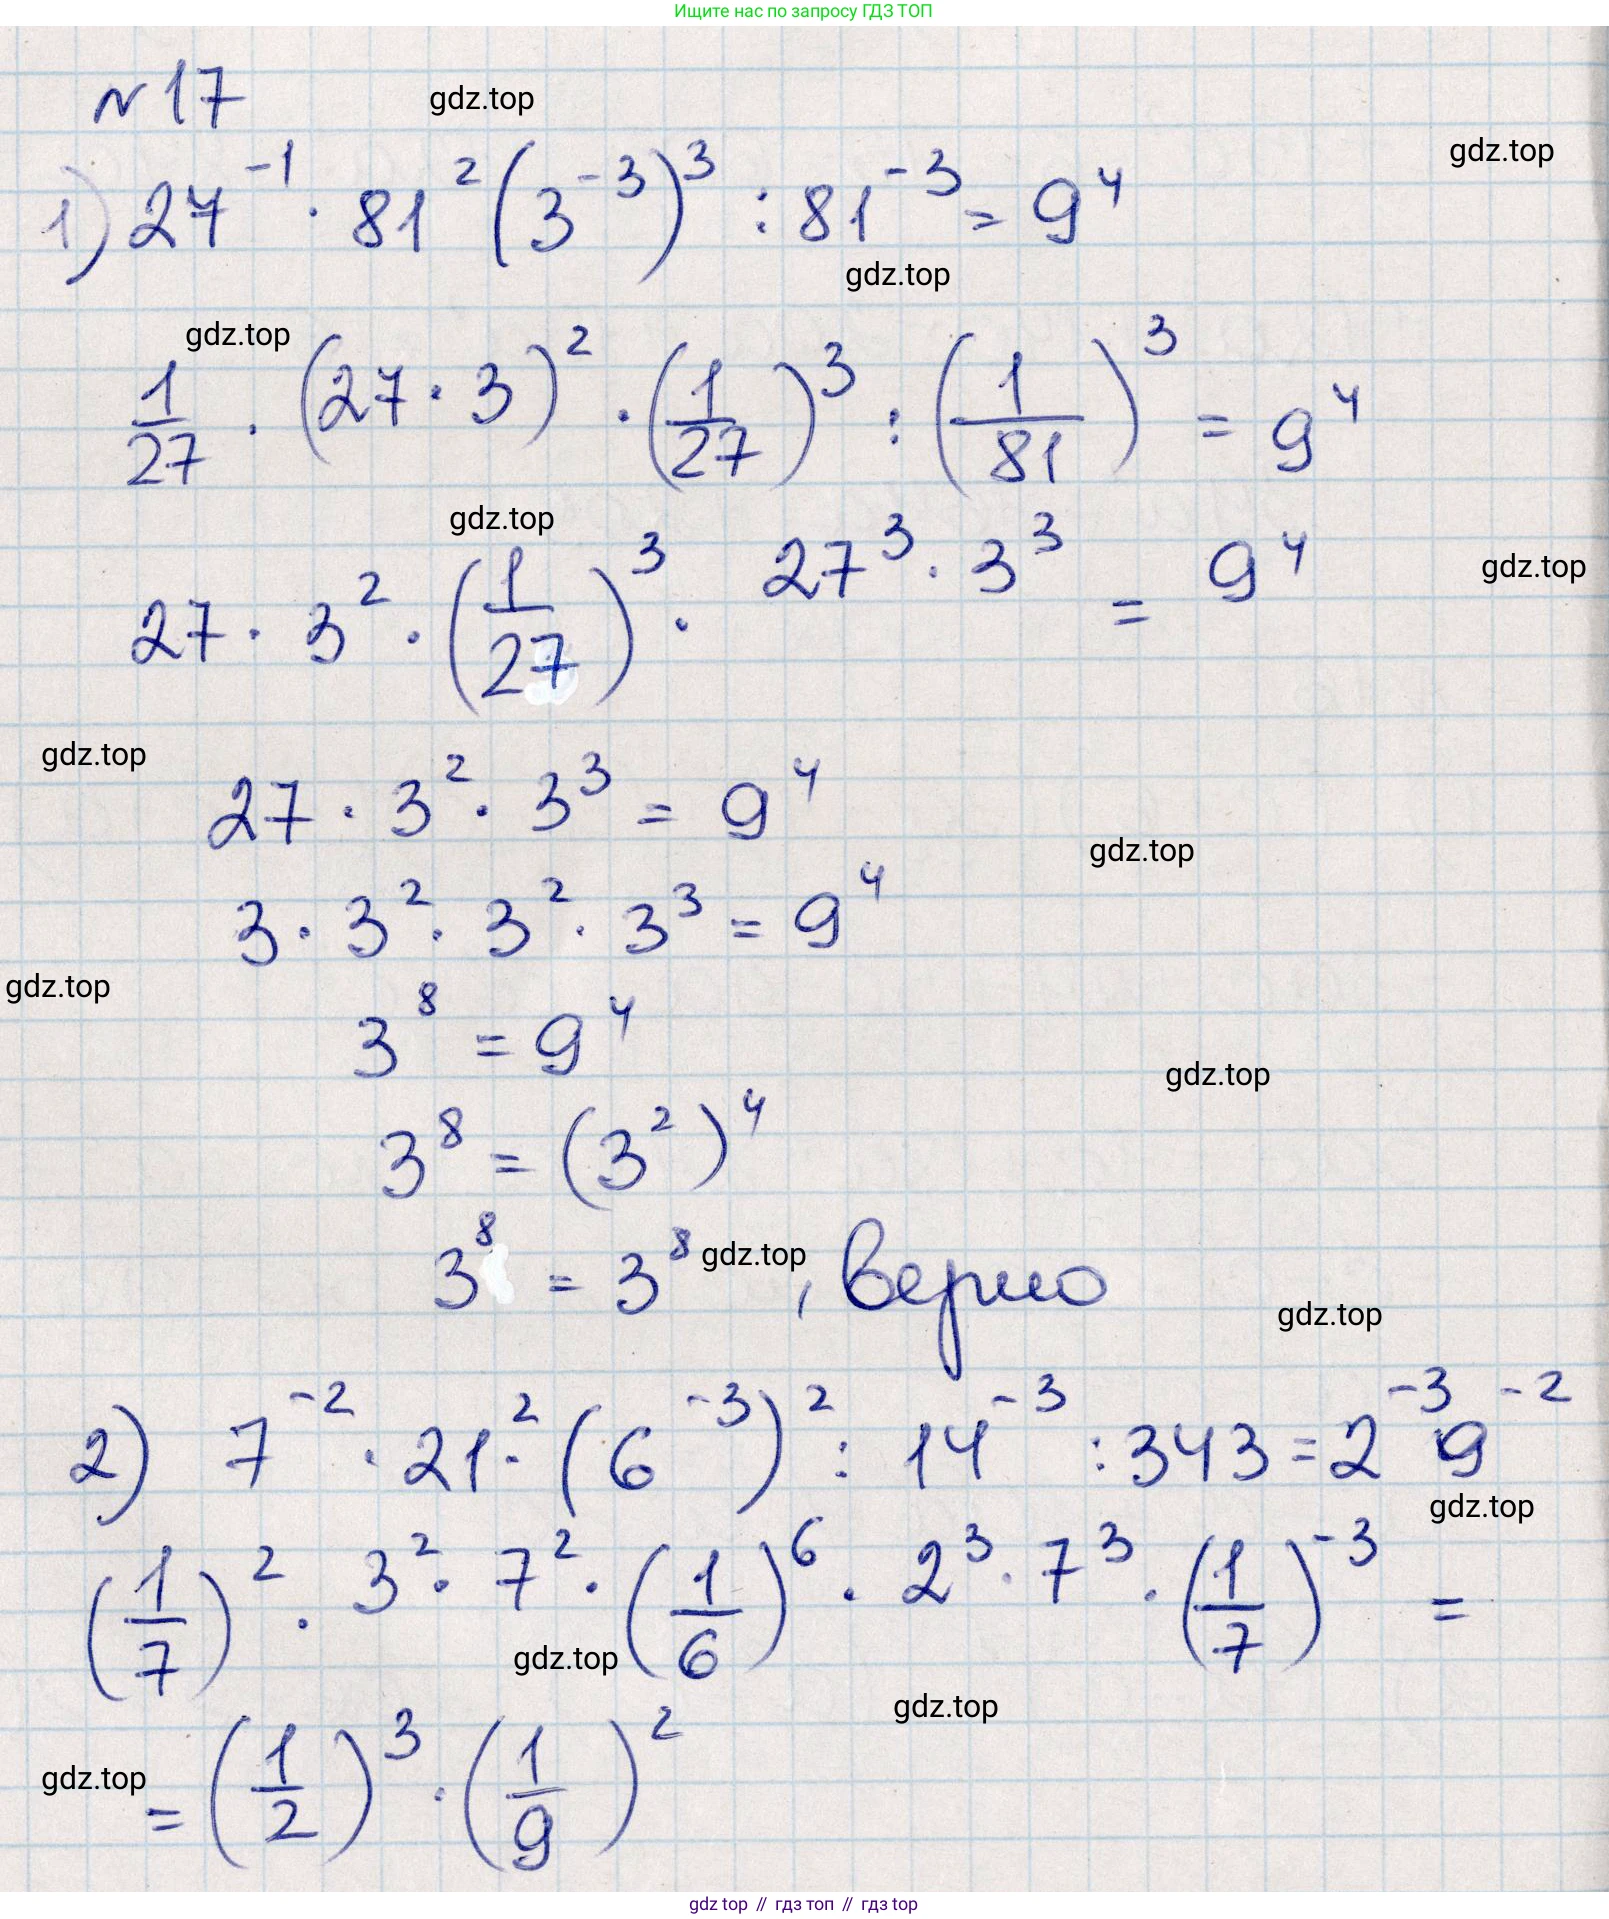 Ищите нас по запросу ГДЗ ТОП
№17
gdz.top
gdz.top
1) 27^{-1} · 81^2 (3^{-3})^3 : 81^{-3} = 9^4
gdz.top
gdz.top
1/27 · (27 · 3)^2 · (1/27)^3 : (1/81)^3 = 9^4
gdz.top
27 · 3^2 · (1/27)^3 · 27^3 · 3^3 = 9^4
gdz.top
gdz.top
27 · 3^2 · 3^3 = 9^4
gdz.top
3 · 3^2 · 3^2 · 3^3 = 9^4
gdz.top
3^8 = 9^4
gdz.top
3^8 = (3^2)^4
3^8 = 3^8, верно
gdz.top
gdz.top
2) 7^{-2} · 21^2 · (6^{-3})^2 : 14^{-3} : 343 = 2^{-3} 9^{-2}
gdz.top
(1/7)^2 · 3^2 · 7^2 · (1/6)^6 · 2^3 · 7^3 · (1/7)^{-3} =
gdz.top
gdz.top
gdz.top
= (1/2)^3 · (1/9)^2
gdz top // гдз топ // гдз top